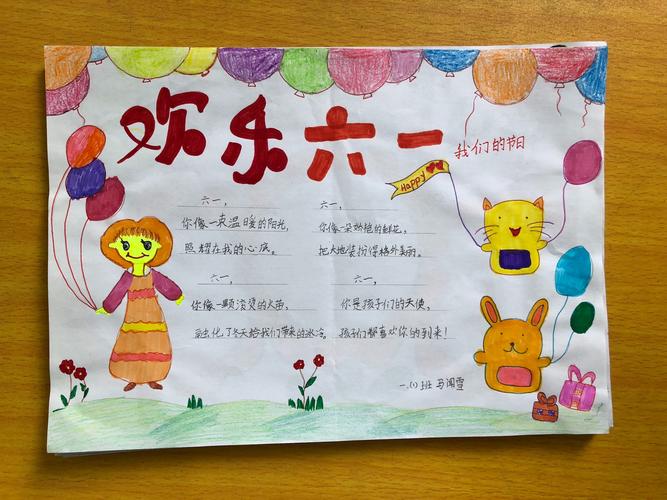 欢乐六一
我们的节日
Happy
六一，
你像一束温暖的阳光，
照耀在我的心底。
六一，
你像一颗滚烫的火苗，
融化了冬天给我们带来的冰冷。
六一，
你像一朵娇艳的鲜花，
把大地装扮得格外美丽。
六一，
你是孩子们的天使，
孩子们都喜欢你的到来！
一.(1)班 马雪